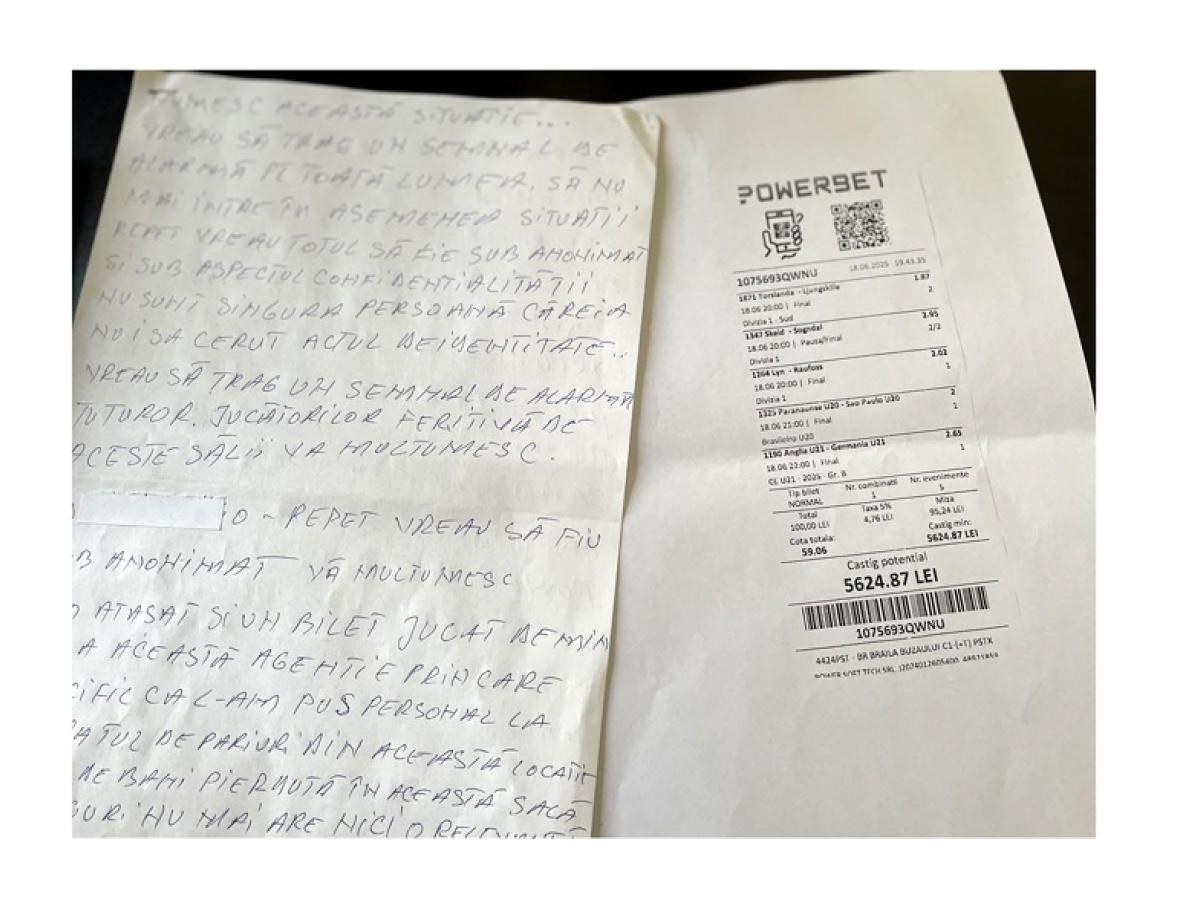 TUMESC ACEASTĂ SITUATIE...
VREAU SĂ TRAG UN SEMNAL DE
ALARMĂ PE TOATĂ LUMEA, SĂ NU
MAI INTRE ÎN ASEMENEA SITUATII
REPET VREAU TOTUL SĂ FIE SUB ANONIMAT
SI SUB ASPECTUL CONFIDENTIALITĂTII
NU SUNT SINGURA PERSOANĂ CĂREIA
NU I SA CERUT ACTUL DE IDENTITATE..
VREAU SĂ TRAG UN SEMNAL DE ALARMĂ
TUTUROR. JUCĂTORILOR FERITIVĂ DE
ACESTE SĂLI VA MULTUMESC.
O - REPET VREAU SĂ FIU
B ANONIMAT VĂ MULTUMESC
ATASAT SI UN BILET JUCAT DE MIN
A ACEASTĂ AGENTIE PRIN CARE
CIFIC CA L-AM PUS PERSONAL LA
ATUL DE PARIURI DIN ACEASTĂ LOCATIE
DE BANI PIERDUTĂ ÎN ACEASTĂ SALĂ
GURI NU MAI ARE NICI O
POWERBET
1075693QWNU 18.06.2025 19.43.35
1871 Torslanda - Ljungskille 1.87
18.06 20:00 | Final 2
Divizia 1 - Sud
1347 Skeid - Sogndal 2.95
18.06 20:00 | Pauza/Final 2/2
Divizia 1
1264 Lyn - Raufoss 2.02
18.06 20:00 | Final 1
Divizia 1
1325 Paranaunse U20 - Sao Paulo U20 2
18.06 21:00 | Final 1
Brasileiro U20
1190 Anglia U21 - Germania U21 2.65
18.06 22:00 | Final 1
CE U21 - 2025 - Gr. B
Tip bilet Nr. combinatii Nr. evenimente
NORMAL 1 5
Total Taxa 5% Miza
100,00 LEI 4,76 LEI 95,24 LEI
Cota totala: Castig min:
59.06 5624.87 LEI
Castig potential
5624.87 LEI
1075693QWNU
4424PST - BR BRAILA BUZAULUI C1-(+T) PSTX
POWER SOFT TECH SRL, J2024012605400,